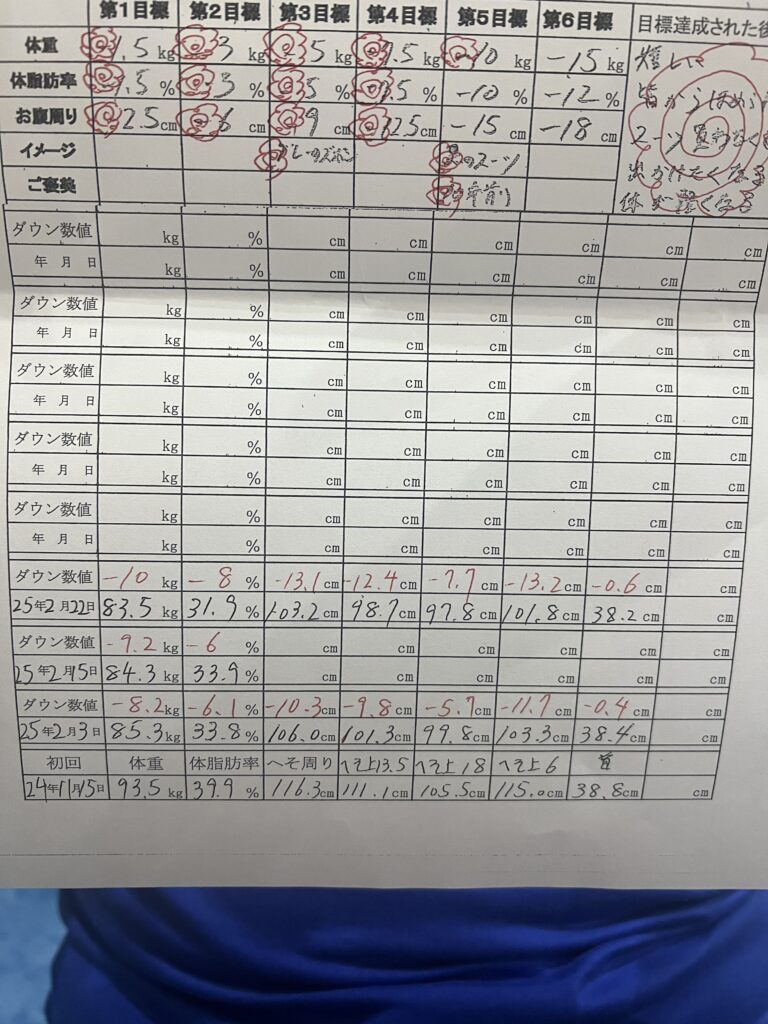 第1目標 第2目標 第3目標 第4目標 第5目標 第6目標 目標達成された後
体重 1.5 kg 3 kg 5 kg 7.5 kg -10 kg -15 kg 嬉しい
体脂肪率 1.5 % 3 % 5 % 7.5 % -10 % -12 % 皆からほめら
お腹周り 2.5 cm -6 cm 9 cm 12.5 cm -15 cm -18 cm スーツ買わなくも
イメージ グレーのズボン のスーツ 出かけたくなる
ご褒美 体が軽くなる
ダウン数値 kg % cm cm cm cm cm cm
年 月 日 kg % cm cm cm cm cm cm
ダウン数値 kg % cm cm cm cm cm cm
年 月 日 kg % cm cm cm cm cm cm
ダウン数値 kg % cm cm cm cm cm cm
年 月 日 kg % cm cm cm cm cm cm
ダウン数値 kg % cm cm cm cm cm cm
年 月 日 kg % cm cm cm cm cm cm
ダウン数値 kg % cm cm cm cm cm cm
年 月 日 kg % cm cm cm cm cm cm
ダウン数値 -10 kg -8 % -13.1 cm -12.4 cm -7.7 cm -13.2 cm -0.6 cm cm
25年2月22日 83.5 kg 31.9 % 103.2 cm 98.7 cm 97.8 cm 101.8 cm 38.2 cm cm
ダウン数値 -9.2 kg -6 % cm cm cm cm cm cm
25年2月15日 84.3 kg 33.9 % cm cm cm cm cm cm
ダウン数値 -8.2 kg -6.1 % -10.3 cm -9.8 cm -5.7 cm -11.7 cm -0.4 cm cm
25年2月3日 85.3 kg 33.8 % 106.0 cm 101.3 cm 99.8 cm 103.3 cm 38.4 cm cm
初回 体重 体脂肪率 へそ周り へそ上13.5 へそ上18 へそ上6 首
24年11月15日 93.5 kg 39.9 % 116.3 cm 111.1 cm 105.5 cm 115.0 cm 38.8 cm cm